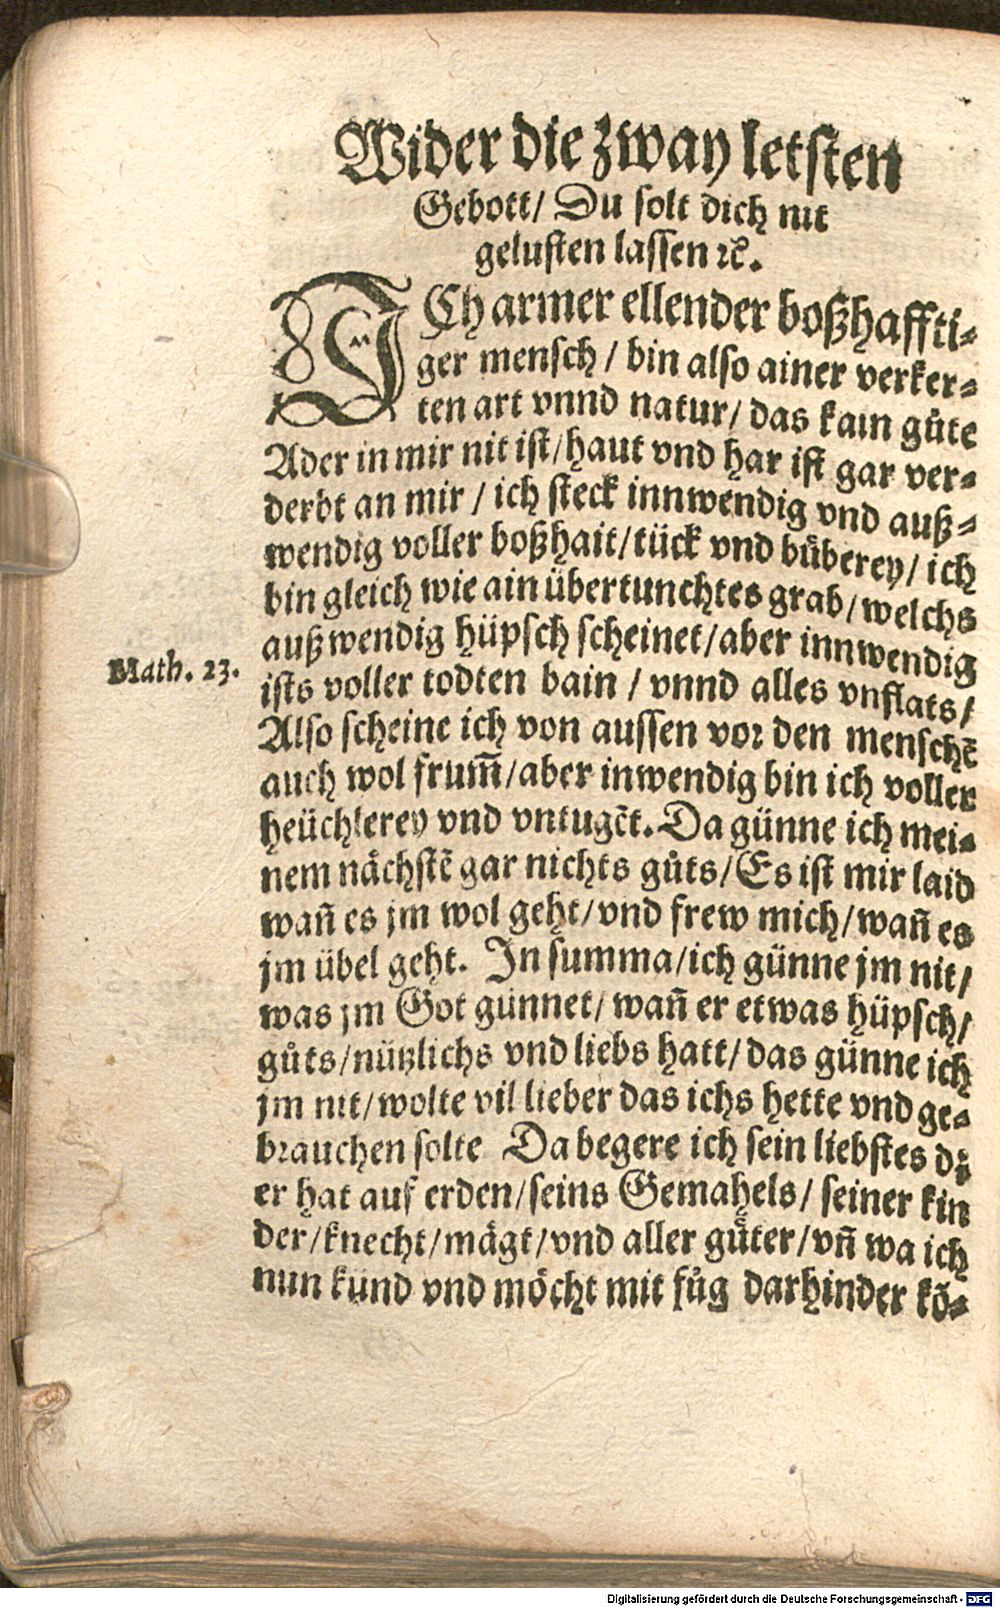 Wider die zway letsten
Gebott/ Du solt dich nit
gelusten lassen ꝛc̃.
ICh armer ellender boßhaffti-
ger mensch / bin also ainer verker-
ten art vnnd natur/ das kain gůte
Ader in mir nit ist/haut vnd har ist gar ver-
derbt an mir / ich steck innwendig vnd auß-
wendig voller boßhait/tück vnd bůberey/ ich
bin gleich wie ain übertunchtes grab/welchs
außwendig hüpsch scheinet/aber innwendig
Math. 23.
ists voller todten bain / vnnd alles vnflats/
Also scheine ich von aussen vor den menschẽ
auch wol frum̃/aber inwendig bin ich voller
heüchlerey vnd vntugẽt. Da günne ich mei-
nem nächstẽ gar nichts gůts/Es ist mir laid
wañ es jm wol geht/vnd frew mich/wañ es
jm übel geht. In summa/ich günne jm nit/
was jm Got günnet/ wañ er etwas hüpsch/
gůts/nützlichs vnd liebs hatt/das günne ich
jm nit/wolte vil lieber das ichs hette vnd ge-
brauchen solte Da begere ich sein liebstes dz
er hat auf erden/seins Gemahels/ seiner kin
der/knecht/mägt/vnd aller gůter/vñ wa ich
nun künd vnd möcht mit fůg darhinder kõ-
Digitalisierung gefördert durch die Deutsche Forschungsgemeinschaft - DFG